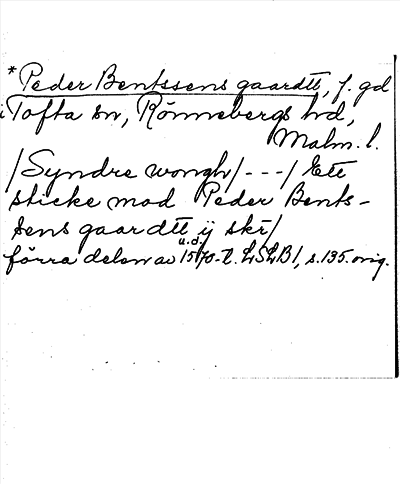 *Peder Bentssens gaardtt, f. gd
i Tofta sn, Rönnebergs hd,
Malm. l.
/Syndre wongh/---/Ett
sticke mod Peder Bents-
sens gaardtt ij skr/
u.d.
förra delen av 1570-t. LSLB1, s. 135. orig.